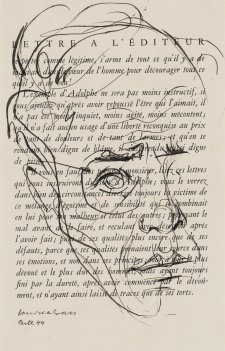 LETTRE A L'ÉDITEUR
comme légitime, s'arme de tout ce qu'il y a de
de l'homme pour décourager tout ce
qu'il y a de
L'exemple d'Adolphe ne sera pas moins instructif, si
vous ajoutez qu'après avoir repoussé l'être qui l'aimait,
pas été moins inquiet, moins agité, moins mécontent;
qu'il n'a fait aucun usage d'une liberté reconquise au prix
de tant de douleurs et de tant de larmes; et qu'en se
rendant bien digne de blâme, il s'est rendu aussi digne
de pitié.
S'il vous en faut des lire ces lettres
qui vous instruiront du sort d'Adolphe; vous le verrez
dans bien des circonstances diverses, et toujours la victime de
ce mélange d'égoïsme et de sensibilité qui se combinait
en lui pour son malheur et celui des autres; prévoyant le
mal avant de le faire, et reculant avec désespoir après
l'avoir fait; puni de ses qualités plus encore que de ses
défauts, parce que ses qualités prenaient leur source dans
ses émotions, et non dans ses principes; tour à tour le plus
dévoué et le plus dur des hommes, mais ayant toujours
fini par la dureté, après avoir commencé par le dévoue-
ment, et n'ayant ainsi laissé de traces que de ses torts.